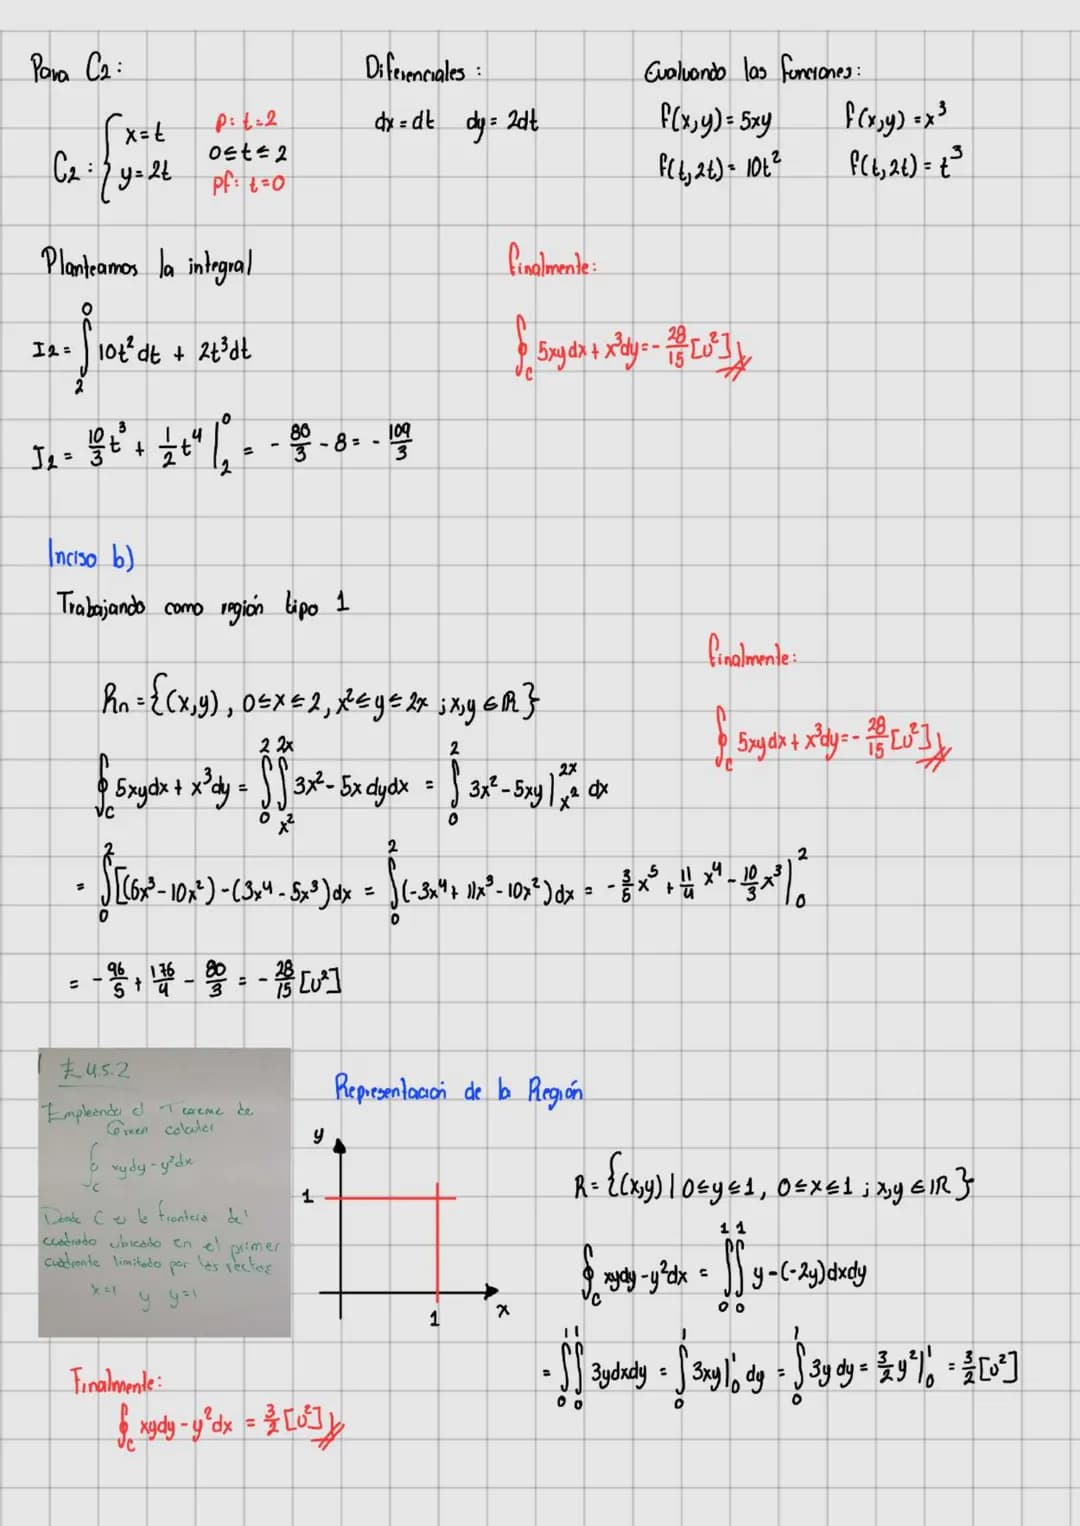 Para C2:
Diferenciales:
Evaluando las funciones:
C2: { x=t
y=2t
p: t=2
0≤t≤2
pf: t=0
dx=dt dy=2dt
f(x,y)=5xy f(x,y)=x³
f(t,2t)=10t² f(t,2t)=t³
Planteamos la integral
I2 = ∫₂⁰ 10t²dt + 2t³dt
I2 = 10/3 t³ + 1/2 t⁴ |₂⁰ = -80/3 - 8 = -109/3
finalmente:
∮c 5xydx + x³dy = -28/15 [u²]
Inciso b)
Trabajando como región tipo 1
Rn = {(x,y), 0≤x≤2, x²≤y≤2x ; x,y ∈ ℝ}
∮c 5xydx + x³dy = ∫₀² ∫x²^2x 3x²-5x dydx = ∫₀² 3x²-5xy |x²^2x dx
= ∫₀² [(6x³-10x²)-(3x⁴-5x³)dx = ∫₀² (-3x⁴+11x³-10x²)dx = -3/5 x⁵ + 11/4 x⁴ - 10/3 x³ |₀²
= -96/5 + 176/4 - 80/3 = -28/15 [u²]
finalmente:
∮c 5xydx + x³dy = -28/15 [u²]
E 4.5.2
Empleando el Teorema de
Green calcular
∮c xydy-y²dx
Donde C es la frontera del
cuadrado ubicado en el primer
cuadrante limitado por las rectas
x=1 y y=1
Representación de la Región
y
1
1
x
R = {(x,y) | 0≤y≤1, 0≤x≤1 ; x,y ∈ ℝ}
∮c xydy-y²dx = ∫₀¹ ∫₀¹ y-(-2y)dxdy
= ∫₀¹ ∫₀¹ 3ydxdy = ∫₀¹ 3xy|₀¹ dy = ∫₀¹ 3y dy = 3/2 y²|₀¹ = 3/2 [u²]
Finalmente:
∮c xydy-y²dx = 3/2 [u²]